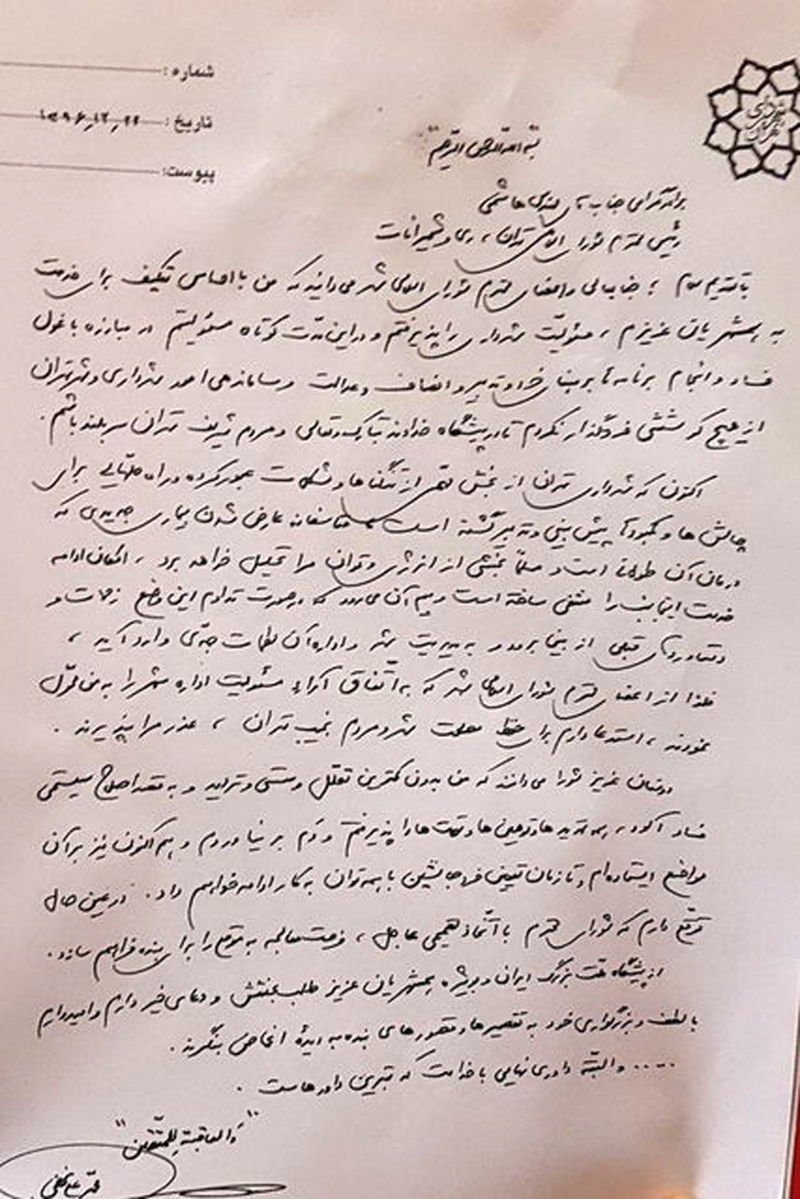 شماره :
تاریخ : ۱۳۹۶،۱۲،۲۲
پیوست:
شهرداری تهران
بسم الله الرحمن الرحیم
برادر گرامی جناب آقای مهندس هاشمی
رئیس محترم شورای اسلامی تهران، ری و شمیرانات
با تقدیم سلام؛ جنابعالی و اعضای محترم شورای اسلامی شهر می‌دانید که من با احساس تکلیف برای خدمت
به همشهریان عزیزم، مسئولیت شهرداری را پذیرفتم و در این مدت کوتاه مسئولیتم در مبارزه با غول
فساد و انجام برنامه‌ها بر مبنای خرد و تدبیر و انصاف و عدالت و ساماندهی امور شهرداری و شهر تهران
از هیچ کوششی فروگذار نکردم تا در پیشگاه خداوند تبارک و تعالی و مردم شریف تهران سربلند باشم.
اکنون که شهرداری تهران از بخش مهمی از تنگناها و مشکلات عبور کرده و راه حلهایی برای
چالش‌ها و کمبودها پیش بینی و تدبیر گشته است متاسفانه عارض شدن بیماری جدیدی که
درمان آن طولانی است و مسلماً بخشی از انرژی و توان مرا تحلیل خواهد برد، امکان ادامه
خدمت اینجانب را منتفی ساخته است و بیم آن می‌رود که در صورت تداوم این وضع زحمات و
دستاوردهای قبلی از بین برود و به مدیریت شهر و اداره آن لطمات جدی وارد آید،
لذا از اعضای محترم شورای اسلامی شهر که به اتفاق آراء مسئولیت اداره شهر را به من محول
نمودند، استدعا دارم برای حفظ مصلحت شهر و مردم نجیب تهران، عذر مرا بپذیرند.
دوستان عزیز شورا می‌دانند که من بدون کمترین تعلل و سستی و تردید و به قصد اصلاح سیستمی
فساد آلود، همه تهدیدها و توهین‌ها و تهمت‌ها را پذیرفتم و دم بر نیاوردم و هم اکنون نیز بر آن
مواضع ایستاده‌ام و تا زمان تعیین فرد جانشین با همه توان به کار ادامه خواهم داد. در عین حال
توقع دارم که شورای محترم با اتخاذ تصمیمی عاجل، فرصت معالجه به موقع را برای بنده فراهم سازد.
از پیشگاه ملت بزرگ ایران و بویژه همشهریان عزیز طلب بخشش و دعای خیر دارم و امیدوارم
با لطف و بزرگواری خود به تقصیرها و قصورهای بنده به دیده اغماض بنگرند.
..... و البته داوری نهایی با خداست که بهترین داورهاست.
"والعاقبة للمتقین"
محمد علی نجفی